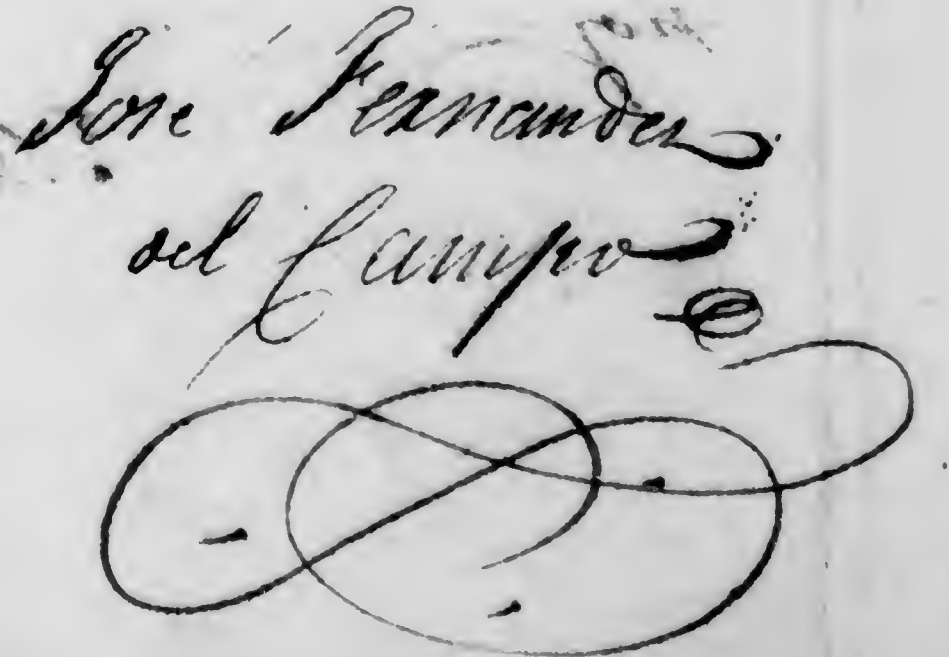 José Fernandez
del Campo